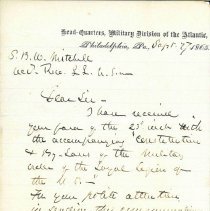 Head-Quarters, Military Division of the Atlantic,
Philadelphia, Pa., Sept 27 1865
S. B. W. Mitchell
Rec. L. L. U. S.
Dear Sir
I have received
your favor of the 25" inst with
the accompanying "Constitution
& By-Laws of the Military
order of the Loyal Legion of
the U. S."
For your polite attention
in sending this